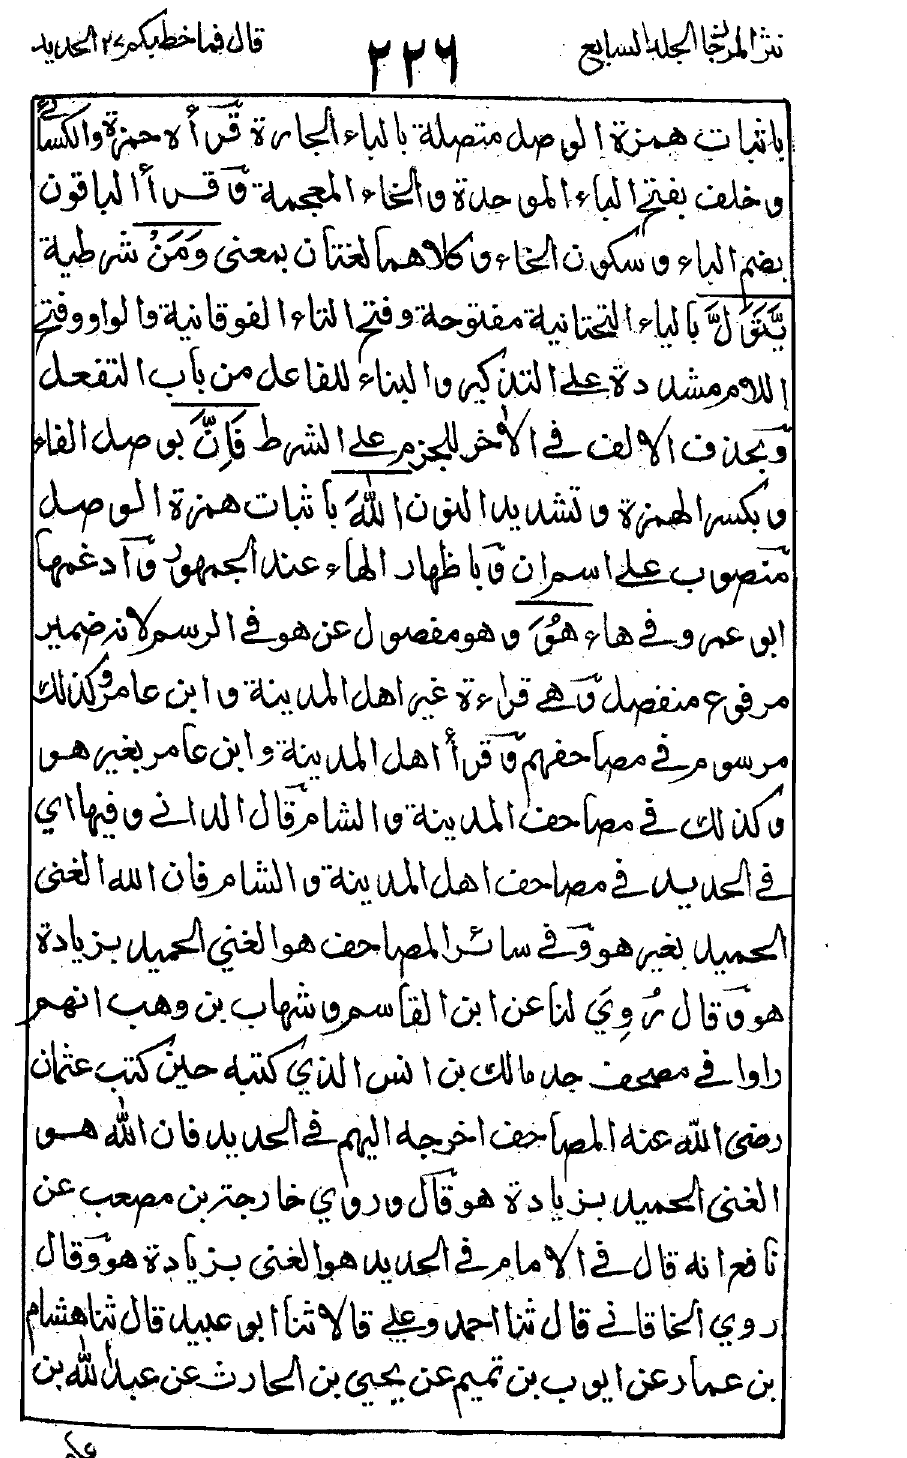 نثر المرجان الجلد السابع
٢٢٦
قال فما خطبكم ٢٧ الحديد
باثبات همزة الوصل متصلة بالباء الجارة قرأه حمزة والكسائي
وخلف بفتح الباء الموحدة والخاء المعجمة وقرأ الباقون
بضم الباء وسكون الخاء وكلاهما لغتان بمعنى وَمَنْ شرطية
يَّتَوَلَّ بالياء التحتانية مفتوحة وفتح التاء الفوقانية والواو وفتح
اللام مشددة على التذكير والبناء للفاعل من باب التفعل
وبحذف الالف في الآخر للجزم على الشرط فَاِنَّ بوصل الفاء
وبكسر الهمزة وتشديد النون اللّٰهَ باثبات همزة الوصل
منصوب على اسم ان وباظهار الهاء عند الجمهور وادغمها
ابو عمرو في هاء هُوَ وهو مفصول عن هو في الرسم لانه ضمير
مرفوع منفصل وهي قراءة غير اهل المدينة وابن عامر وكذلك
مرسوم في مصاحفهم وقرأ اهل المدينة وابن عامر بغير هو
وكذلك في مصاحف المدينة والشام قال الداني وفيها اي
في الحديد في مصاحف اهل المدينة والشام فان الله الغني
الحميد بغير هو وفي سائر المصاحف هو الغني الحميد بزيادة
هو وقال رُوِيَ لنا عن ابن القاسم وشهاب بن وهب انهم
راوا في مصحف جد مالك بن انس الذي كتبه حين كتب عثمان
رضى الله عنه المصاحف اخرجه اليهم في الحديد فان الله هو
الغني الحميد بزيادة هو قال وروي خارجة بن مصعب عن
نافع انه قال في الامام في الحديد هو الغني بزيادة هو وقال
روي الخاقاني قال ثنا احمد وعلي قالا ثنا ابو عبيد قال ثنا هشام
بن عمار عن ايوب بن تميم عن يحيى بن الحارث عن عبد الله بن